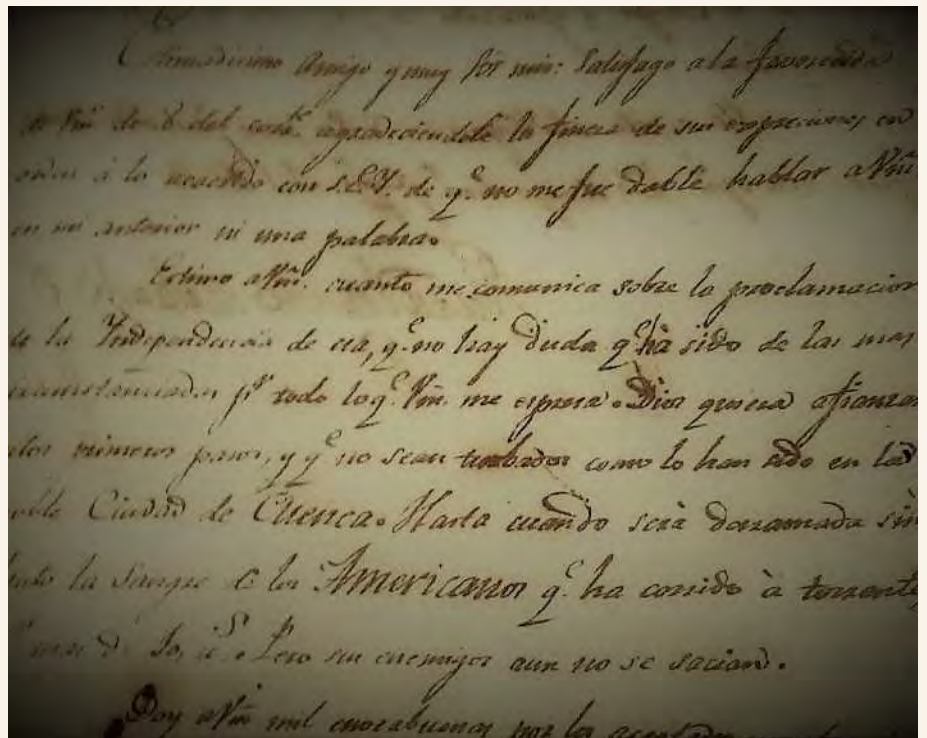 Estimadicimo Amigo y muy Sôr mio: Satisfago a la favorecida
de Vm̃ de 6 del corte. agradeciendole la fineza de sus expreciones en
orden á lo acaecido con S.E.Y. de q.e no me fue dable hablar a Vm̃
en mi anterior ni una palabra.
Estimo a Vm̃. cuanto me comunica sobre la proclamacion
de la Independencia de esa, q.e no hay duda q.e há sido de las mas
circunstanciadas pr. todo lo q.e Vm̃. me expresa. Dios quiera afianzar
los primeros pasos, y q.e no sean turbados como lo han sido en la
Ciudad de Cuenca. Hasta cuando será derramada sin
la Sangre de los Americanos q.e ha corrido à torrentes
Pero sus enemigos aun no se sacian.
Doy a Vm̃ mil enorabuenas por los